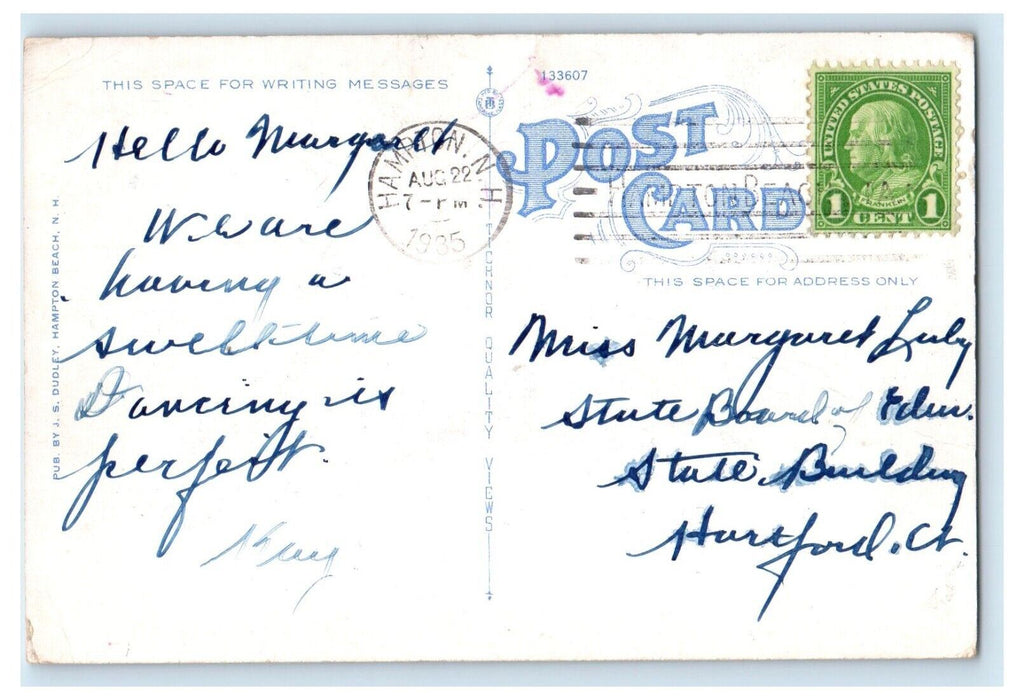 THIS SPACE FOR WRITING MESSAGES
Hello Margaret
We are
having a
swell time
Dancing is
perfect.
Kay
PUB. BY J. S. DUDLEY, HAMPTON BEACH, N. H.
TICHNOR QUALITY VIEWS
HAMPTON, N. H.
AUG 22
7-PM
1935
133607
POST
CARD
HAMPTON BEACH
UNITED STATES POSTAGE
FRANKLIN
1 CENT 1
THIS SPACE FOR ADDRESS ONLY
Miss Margaret
State Board of Educ.
State Building
Hartford. Ct.